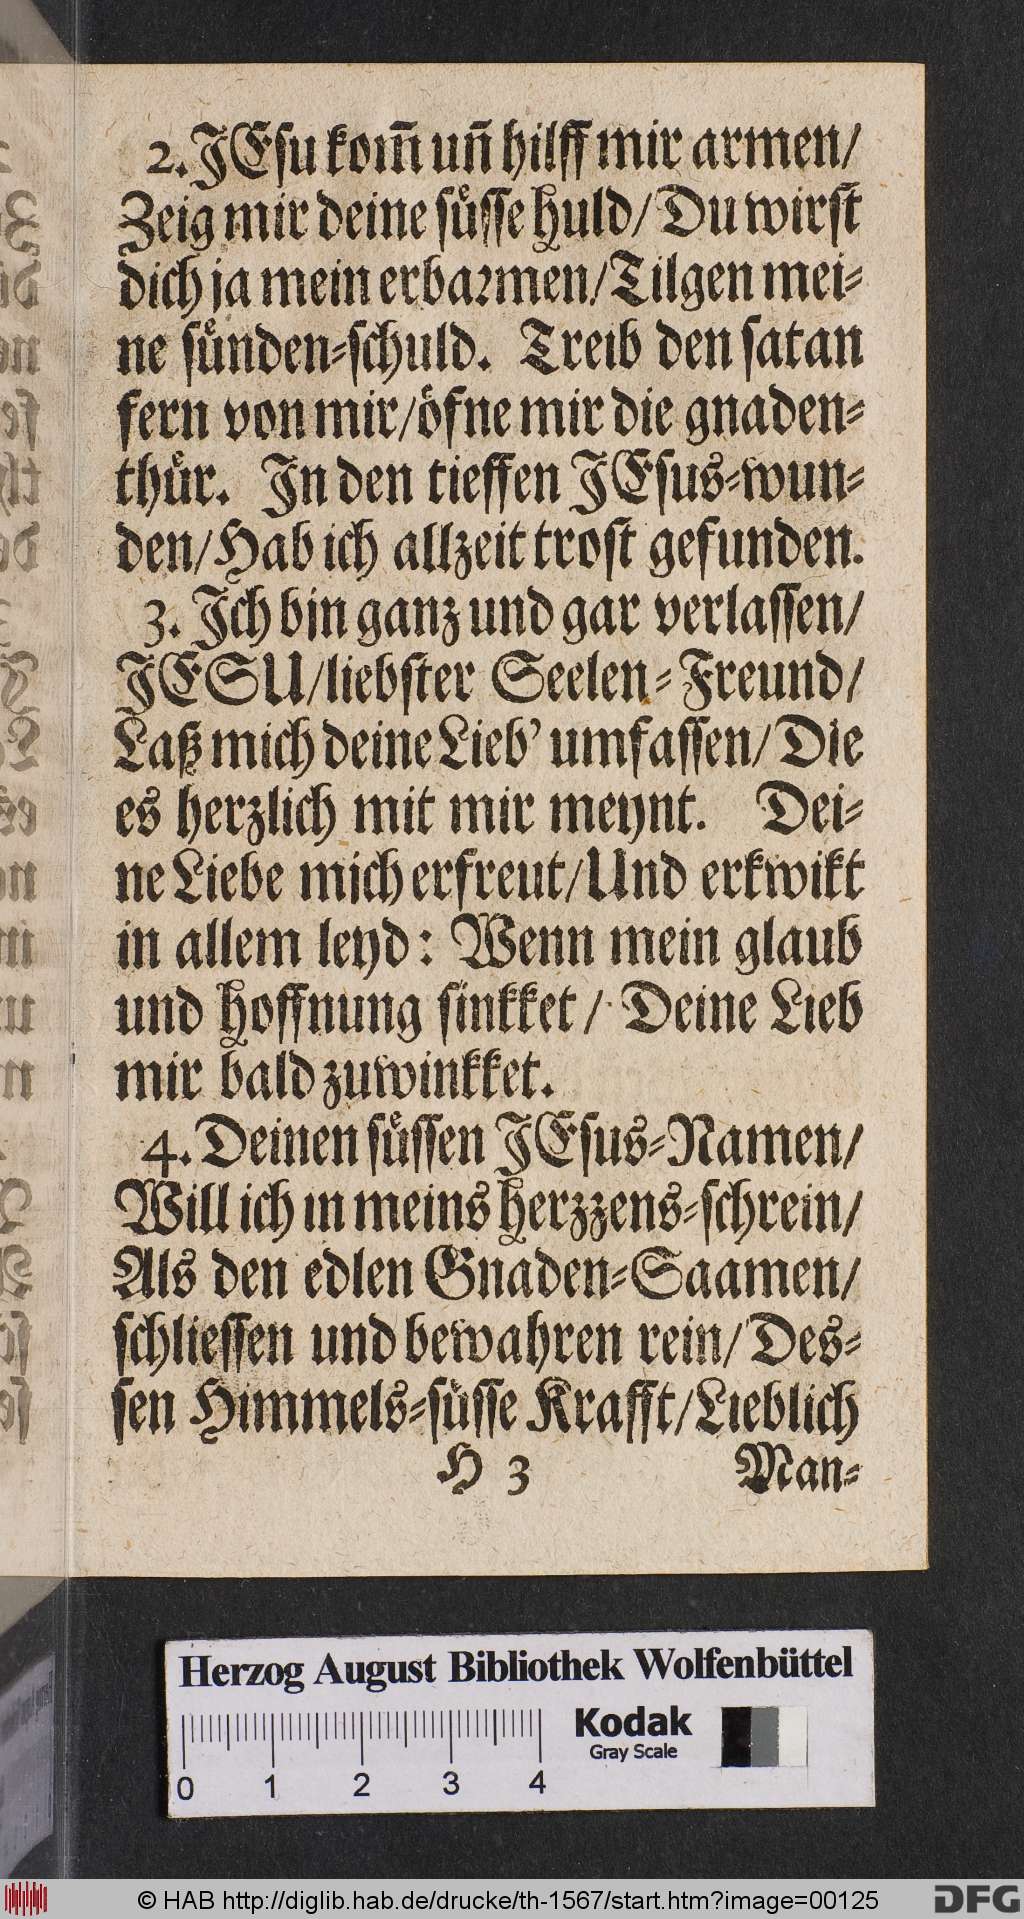 2. JEsu kom̃ uñ hilff mir armen/
Zeig mir deine suͤsse huld/ Du wirst
dich ja mein erbaꝛmen/ Tilgen mei-
ne suͤnden-schuld. Treib den satan
fern von mir/ öfne mir die gnaden-
thuͤr. In den tieffen JEsus-wun-
den/ Hab ich allzeit trost gefunden.
3. Ich bin ganz und gar verlassen/
JESU/ liebster Seelen-Freund/
Laß mich deine Lieb' umfassen/ Die
es herzlich mit mir meynt. Dei-
ne Liebe mich erfreut/ Und erkwikt
in allem leyd: Wenn mein glaub
und hoffnung sinkket/ Deine Lieb
mir bald zuwinkket.
4. Deinen suͤssen JEsus-Namen/
Will ich in meins herzzens-schrein/
Als den edlen Gnaden-Saamen/
schliessen und bewahren rein/ Des-
sen Himmels-suͤsse Krafft/ Lieblich
H 3 Man-
Herzog August Bibliothek Wolfenbüttel
Kodak
Gray Scale
0 1 2 3 4
© HAB http://diglib.hab.de/drucke/th-1567/start.htm?image=00125
DFG